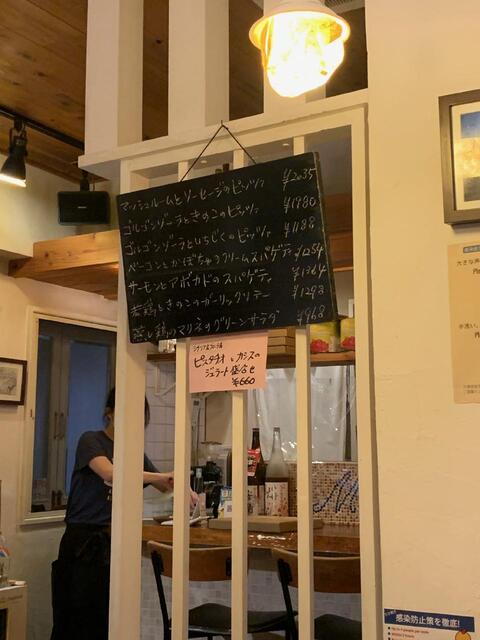 マッシュルームとソーセージのピッツァ ¥2035
ゴルゴンゾーラときのこのピッツァ ¥1980
ゴルゴンゾーラといちじくのピッツァ ¥1188
ベーコンとかぼちゃのクリームスパゲティ ¥1254
サーモンとアボカドのスパゲティ ¥1364
若鶏ときのこのガーリックソテー ¥1298
蒸し鶏のマリネのグリーンサラダ ¥968
ピスタチオとカシスの
ジェラート盛合せ
¥660
感染防止策を徹底!